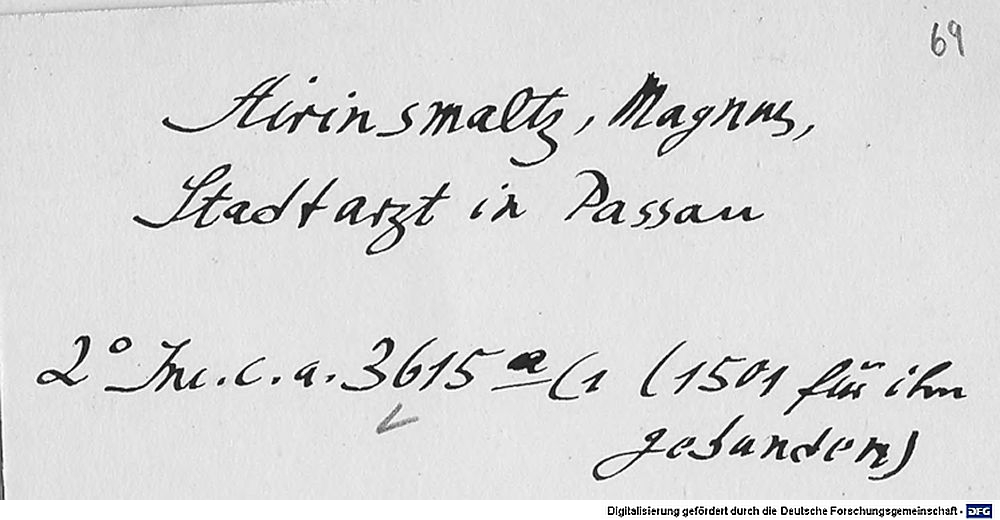 69
Airinsmaltz, Magnus,
Stadtarzt in Passau
2° Inc. c. a. 3615 a (1 (1501 für ihn
gebunden)
Digitalisierung gefördert durch die Deutsche Forschungsgemeinschaft - DFG